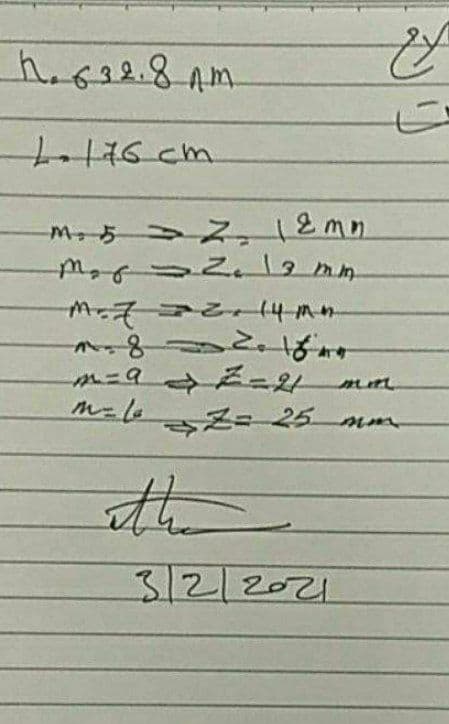 λ = 632.8 nm
L = 176 cm
m = 5 ⇒ Z = 12 mm
m = 6 ⇒ Z = 13 mm
m = 7 ⇒ Z = 14 mm
m = 8 ⇒ Z = mm
m = 9 ⇒ Z = 21 mm
m = 10 ⇒ Z = 25 mm
3/2/2021